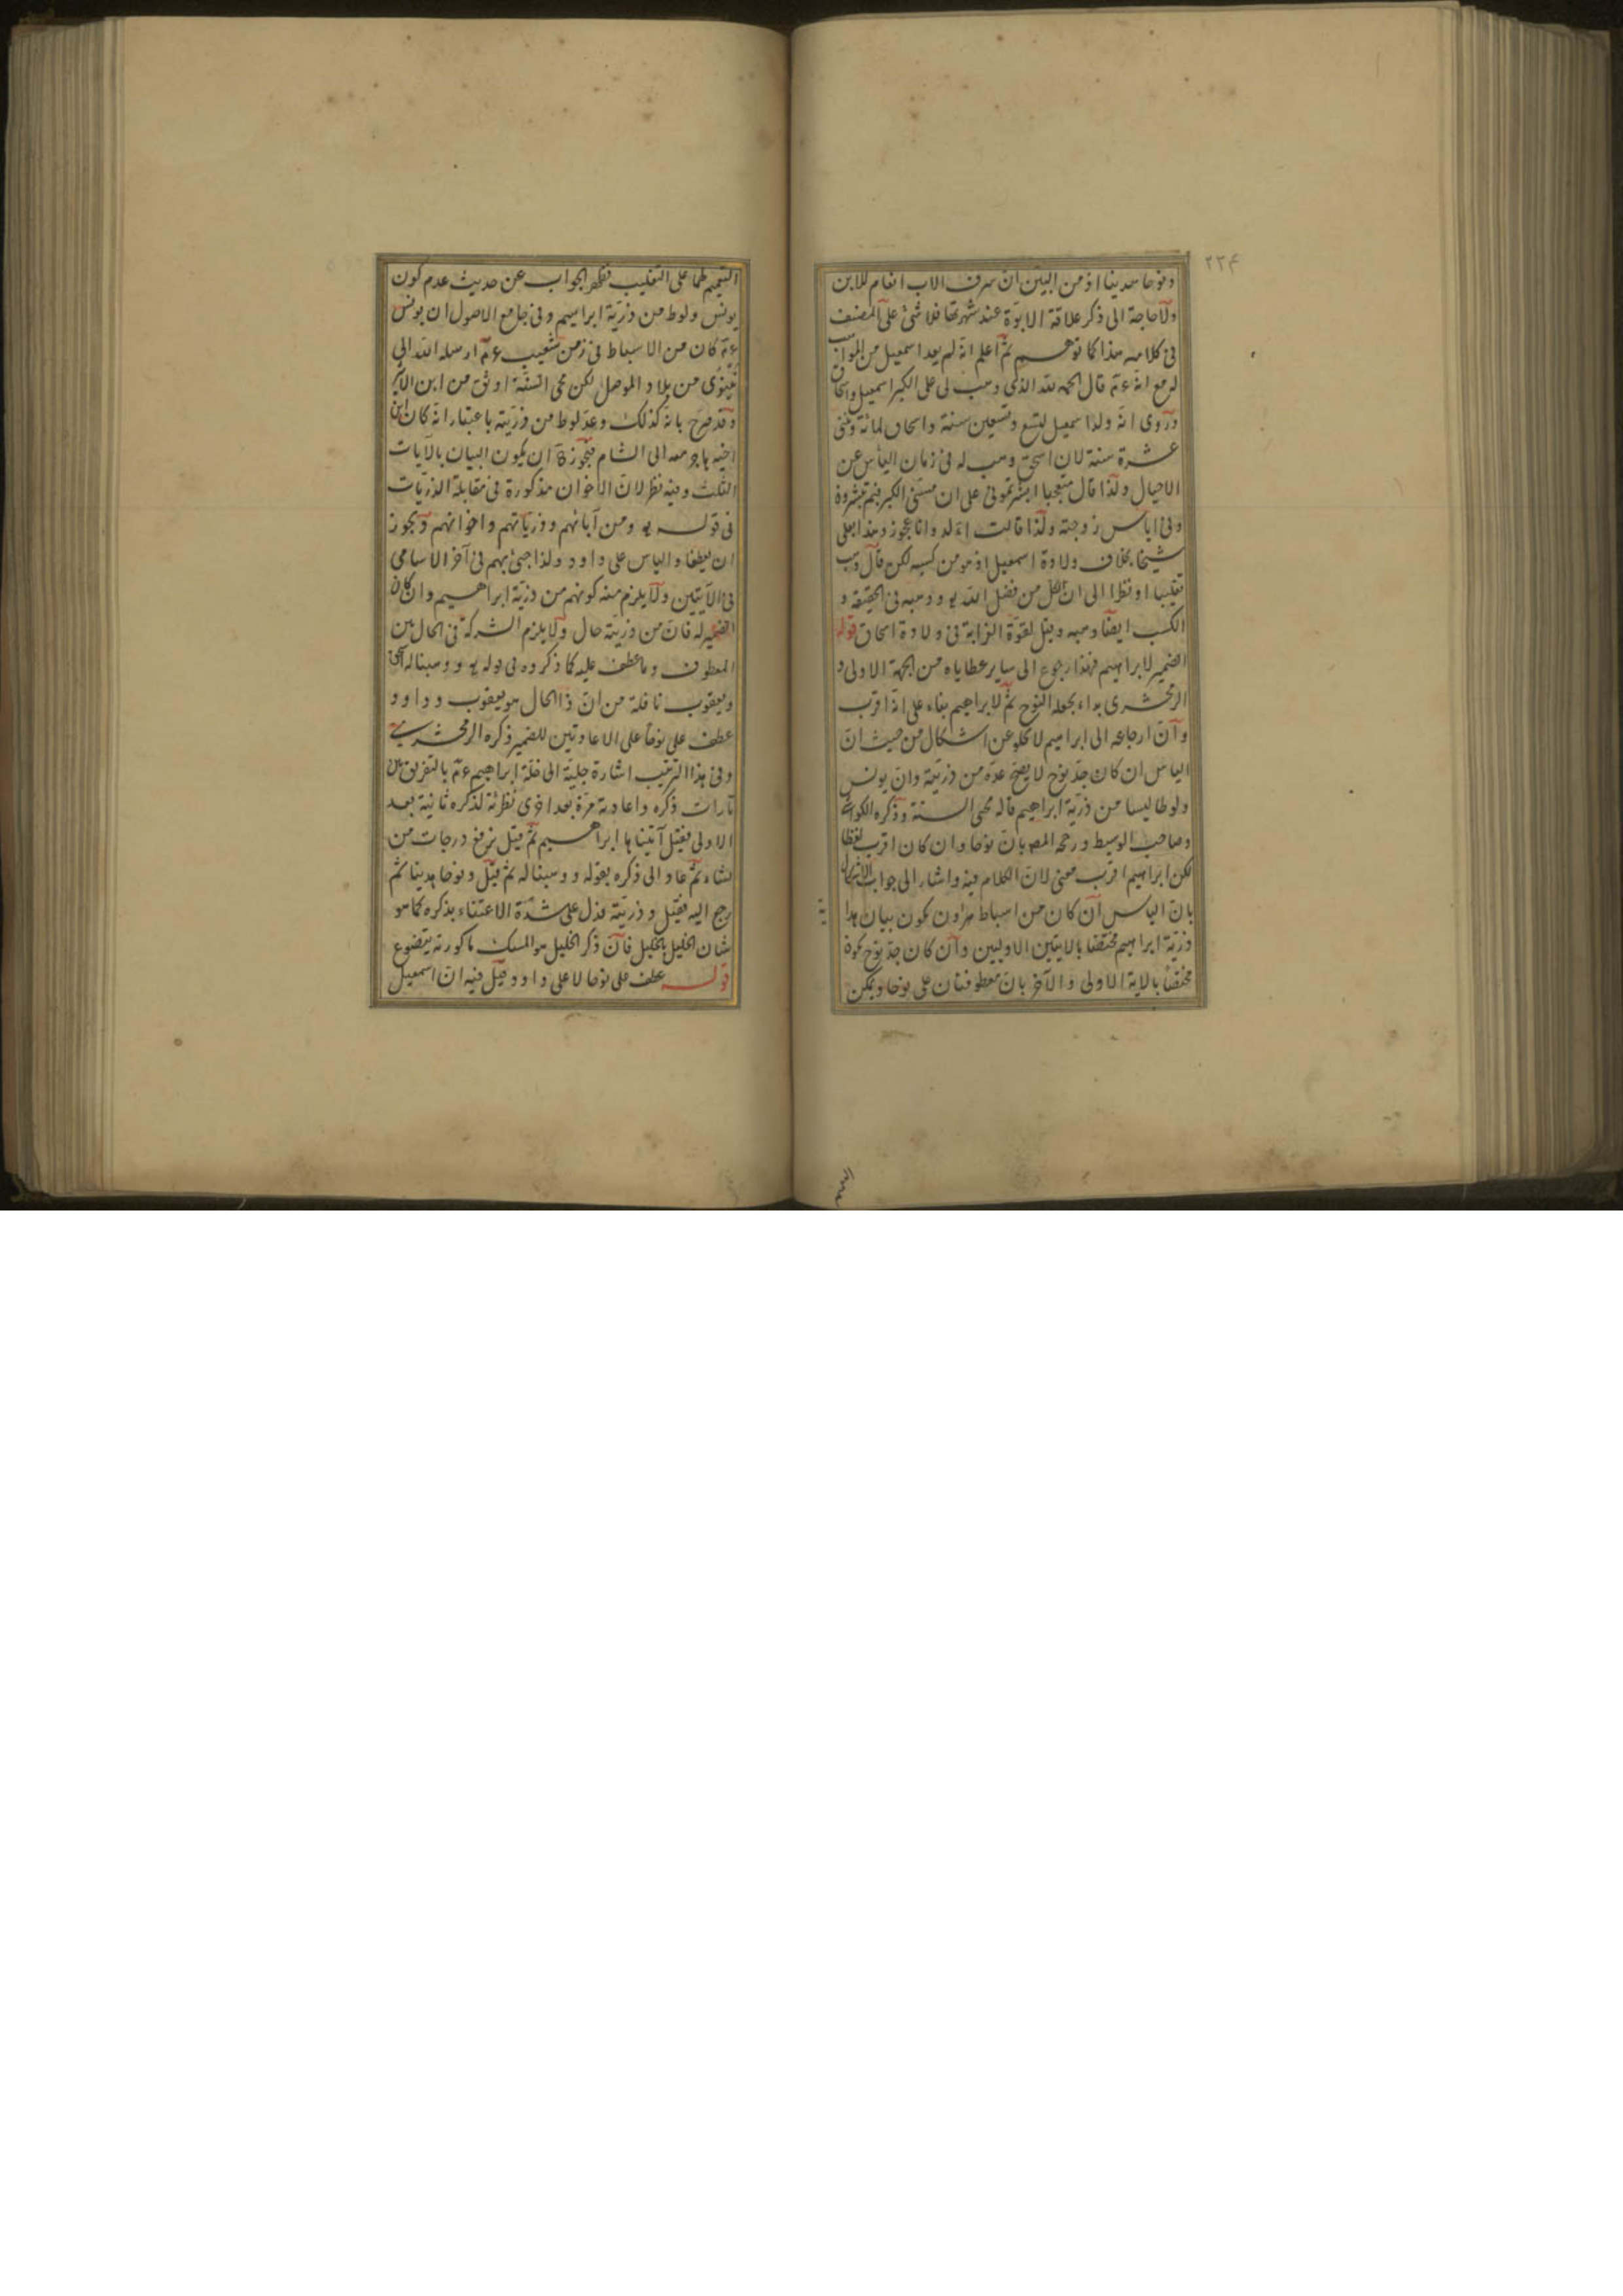 ٢٢۴
ونوحا هدينا اذ من البيّن انّ شرف الاب انعام للابن
ولا حاجة الى ذكر علاقة الابوّة عند شهرتها فلا شئ على المصنف
فى كلامه هذا كما توهم ثمّ اعلم انّه لم يعد اسمعيل من المواهب
له مع انه ءم قال الحمد لله الذى وهب لى على الكبر اسمعيل واسحاق
وروى انّه ولد اسمعيل لتسع وتسعين سنة واسحاق لمائة وثنتى
عشرة سنة لان اسحق وهب له فى زمان اليأس عن
الاحبال ولذا قال متعجبا ابشرتمونى على ان مسّنى الكبر فبم تبشرون
وفى اياس زوجته ولذا قالت ءالد وانا عجوز وهذا بعلى
شيخا بخلاف ولادة اسمعيل اذ هو من كسبه لكن قال وهب
تغليبا او نظرا الى ان الكل من فضل الله يو ووهبه فى الحقيقة و
الكسب ايضا وهبه وقيل لقوّة الغرابة فى ولادة اسحاق قوله
الضمير لابراهيم فهذا رجوع الى ساير عطاياه من الجهة الاولى و
الزمخشرى بداء بجعله لنوح ثمّ لابراهيم بناء على انّه اقرب
وانّ ارجاعه الى ابراهيم لا يخلو عن اشكال من حيث انّ
الياس ان كان جدّ نوح لا يصحّ عدّه من ذريّته وانّ يونس
ولوطا ليسا من ذريّة ابراهيم قاله محى السنة وذكره الكواشى
وصاحب الوسيط ورجحه المص بانّ نوحا وان كان اقرب لفظا
لكن ابراهيم اقرب معنى لانّ الكلام فيه واشار الى جواب الاشكال
بانّ الياس ان كان من اسباط هرون يكون بيان
ذريّة ابراهيم مختصّا بالايتين الاوليين وان كان جدّ نوح يكون
مختصّا بالاية الاولى والآخر بانّ معطوفتان على نوحا ويمكن
التتميم على التغليب فظهر الجواب عن حديث عدم كون
يونس ولوط من ذريّة ابراهيم وفى جامع الاصول ان يونس
ءم كان من الاسباط فى زمن شعيب ءم ارسله الله الى
نينوى من بلاد الموصل لكن محى السنّة اوثق من ابن الاثير
وقد صرّح بانّه كذلك وعدّ لوط من ذريّته باعتبار انّه كان ابن
اخيه هاجر معه الى الشام ان يكون البيان بالآيات
الثلث وفيه نظر لانّ الاخوان مذكورة فى مقابلة الذريّات
فى قوله يو ومن آبائهم وذريّاتهم واخوانهم ويجوز
ان يعطفا والياس على داود ولذا جئ بهم فى آخر الاسامى
فى الآيتين ولا يلزم منه كونهم من ذريّة ابراهيم وان كان
الضمير له فانّ من ذريّته حال ولا يلزم الشركة فى الحال بين
المعطوف وما عطف عليه كما ذكروه فى قوله يو ووهبنا له اسحق
ويعقوب نافلة من انّ ذا الحال هو يعقوب وداود
عطف على نوحا على الاعادتين للضمير ذكره الزمخشرى
وفى هذا الترتيب اشارة جليّة الى خلّة ابراهيم ءم بالتفريق بين
تارات ذكره واعادته مرّة بعد اخرى تطرئة لذكره ثانية بعد
الاولى فقيل آتيناها ابراهيم ثمّ قيل نرفع درجات من
نشاء ثمّ عاد الى ذكره بقوله ووهبنا له ثمّ قيل ونوحا هدينا ثمّ
رجع اليه فقيل وذريّته فدل على شدّة الاعتناء بذكره كما هو
شان الخليل بالخليل فانّ ذكر الخليل هو المسك ما كررته يتضوع
قوله عطف على نوحا لا على داود قيل فيه انّ اسمعيل